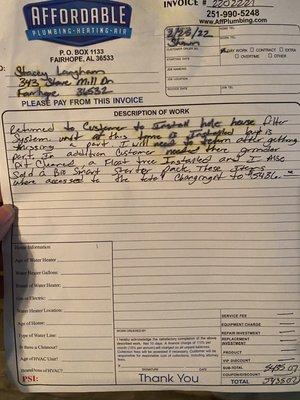 AFFORDABLE
PLUMBING-HEATING-AIR
P. O. BOX 1133
FAIRHOPE, AL 36533
INVOICE #
251-990-5248
www.AffPlumbing.com
2/23/22
Shawn
DAY WORK CONTRACT EXTRA
OVERTIME OTHER
Stacey Langham
343 Stone Mill Dr
Fairhope 36532
PLEASE PAY FROM THIS INVOICE
DESCRIPTION OF WORK
Returned to Customer to Install hole house filter
System unit at this time is Installed but is
missing a part I will need to return after getting
part. In addition customer needed there grinder
pit Cleaned a float tree Installed and I Also
Sold a Bio Smart Starter pack. These Items
where accessed to the total Changing it to $5436.
Home Information
Age of Water Heater
Water Heater Gallons:
Brand of Water Heater:
Gas or Electric:
Water Heater Location:
Age of Home:
Type of Water Line:
Is there a Cleanout?
Age of HVAC Unit?
Brand/Area of HVAC?
PSI:
WORK ORDERED BY
SIGNATURE
DATE
Thank You
SERVICE FEE
EQUIPMENT CHARGE
REPAIR INVESTMENT
REPLACEMENT INVESTMENT
PRODUCT
VIP DISCOUNT
SUB-TOTAL 5435.07
COUPON/DISCOUNT
TOTAL 5435.07